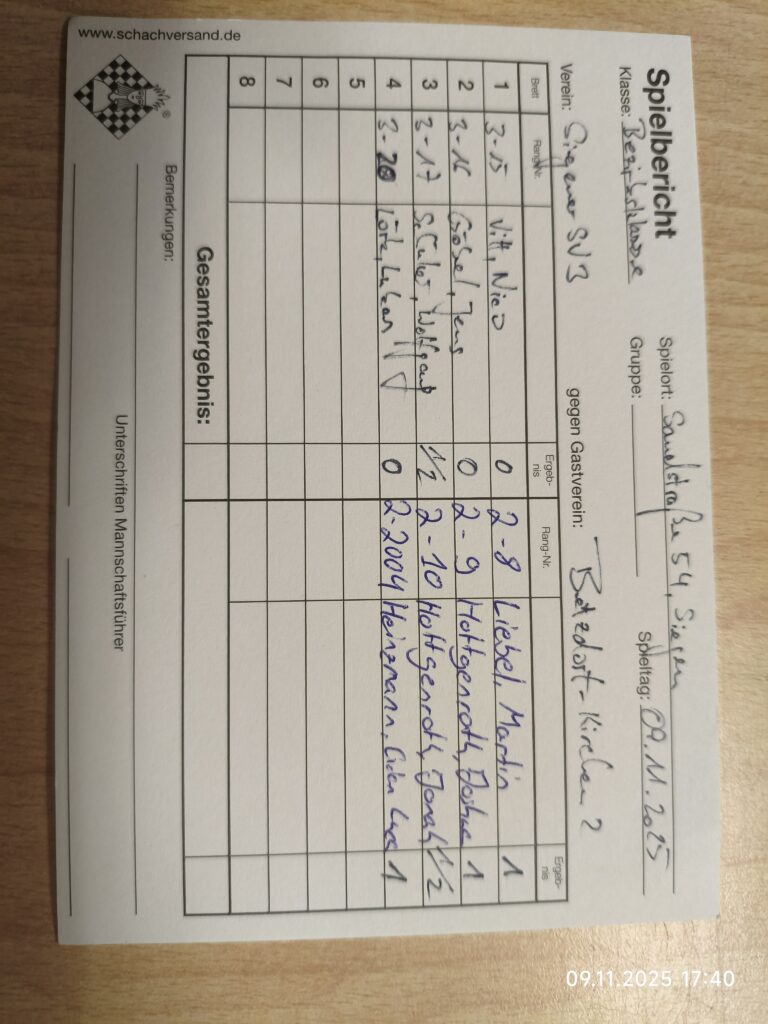 Spielbericht
Klasse: Bezirksklasse
Spielort: Sandstraße 54, Siegen
Gruppe:
Spieltag: 09.11.2025
Verein: Siegener SV 3 gegen Gastverein: Betzdorf-Kirchen 2
Brett Rang-Nr. Ergeb-nis Rang-Nr. Ergeb-nis
1 3-15 Vitt, Nico 0 2-8 Liebel, Martin 1
2 3-16 Göbel, Jens 0 2-9 Hottgenroth, Joshua 1
3 3-17 Wolfgang 1/2 2-10 Hottgenroth, Jonah 1/2
4 3-20 0 2-2004 Heinzmann, 1
5
6
7
8
Gesamtergebnis:
Bemerkungen:
Unterschriften Mannschaftsführer
www.schachversand.de
®
09.11.2025 17:40